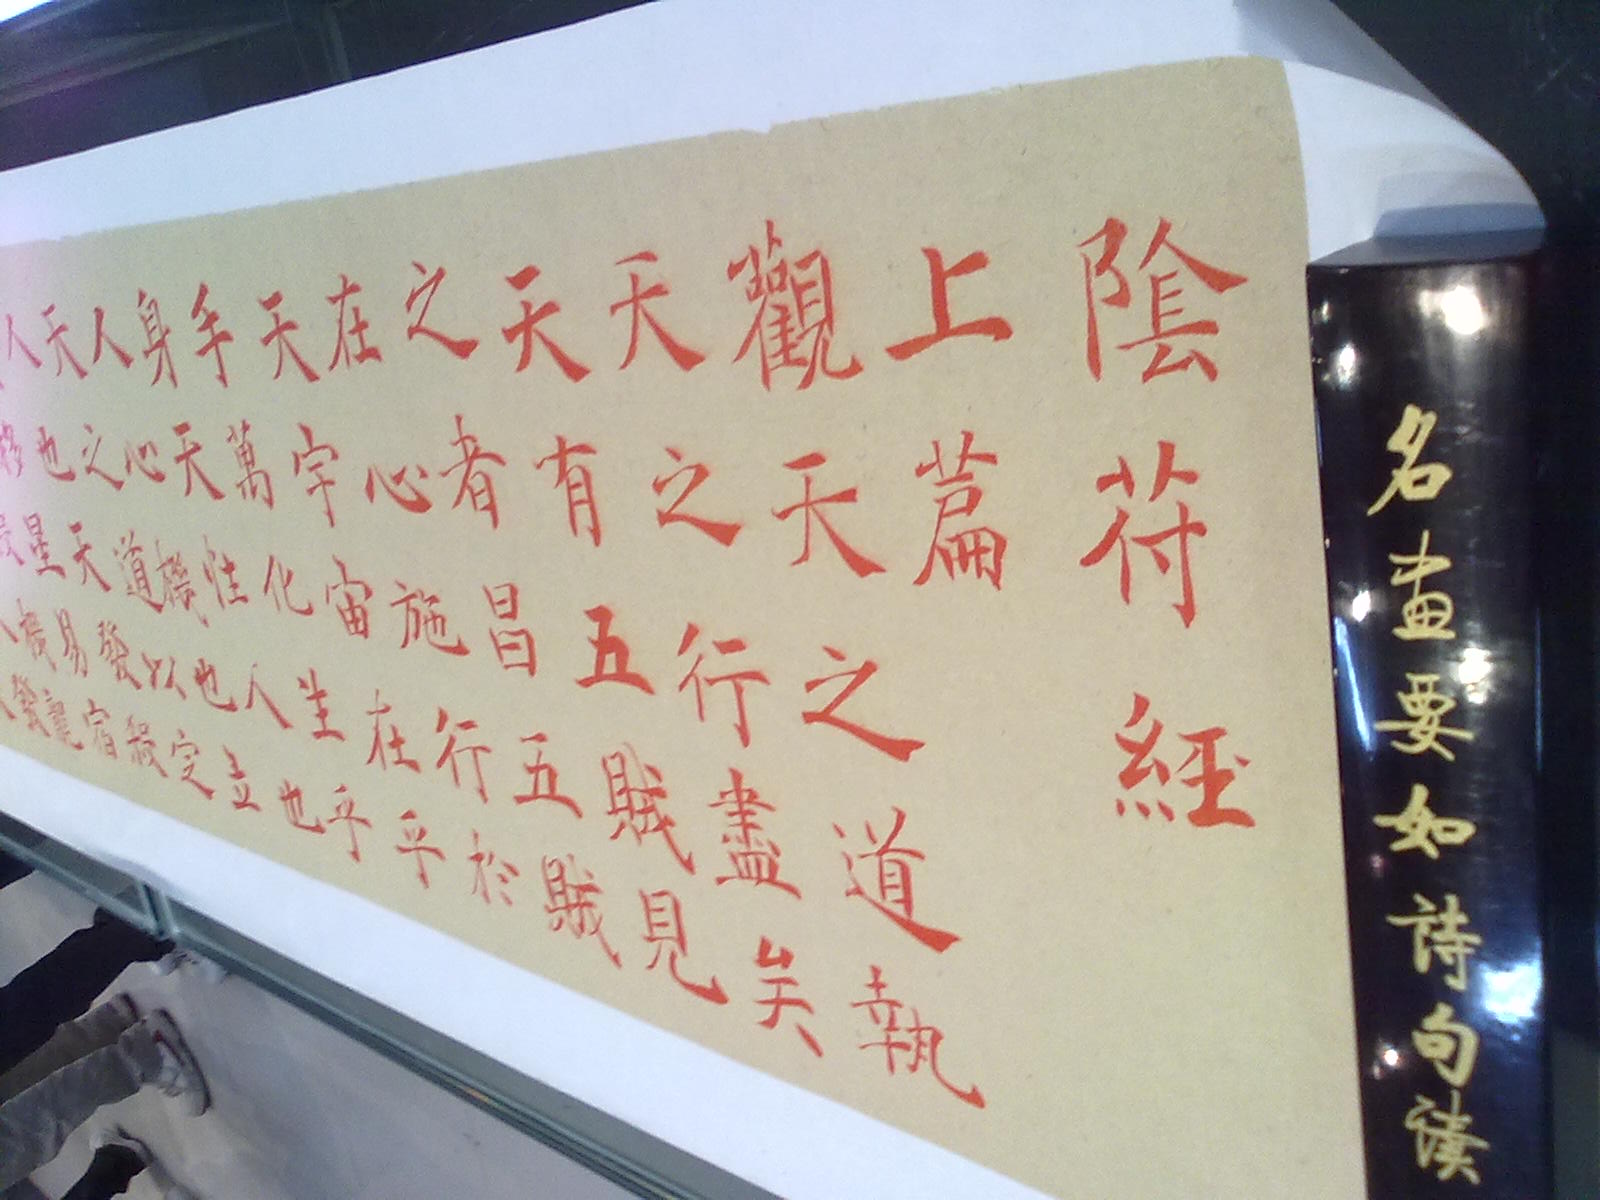 名畫要如詩句讀
陰符經
上篇
觀天之道執
天之行盡矣
天有五賊見
之者昌五賊
在心施行於
天宇宙在乎
手萬化生乎
身天性人也
人心機也立
天之道以定
人也天發殺
移星易宿
機龍